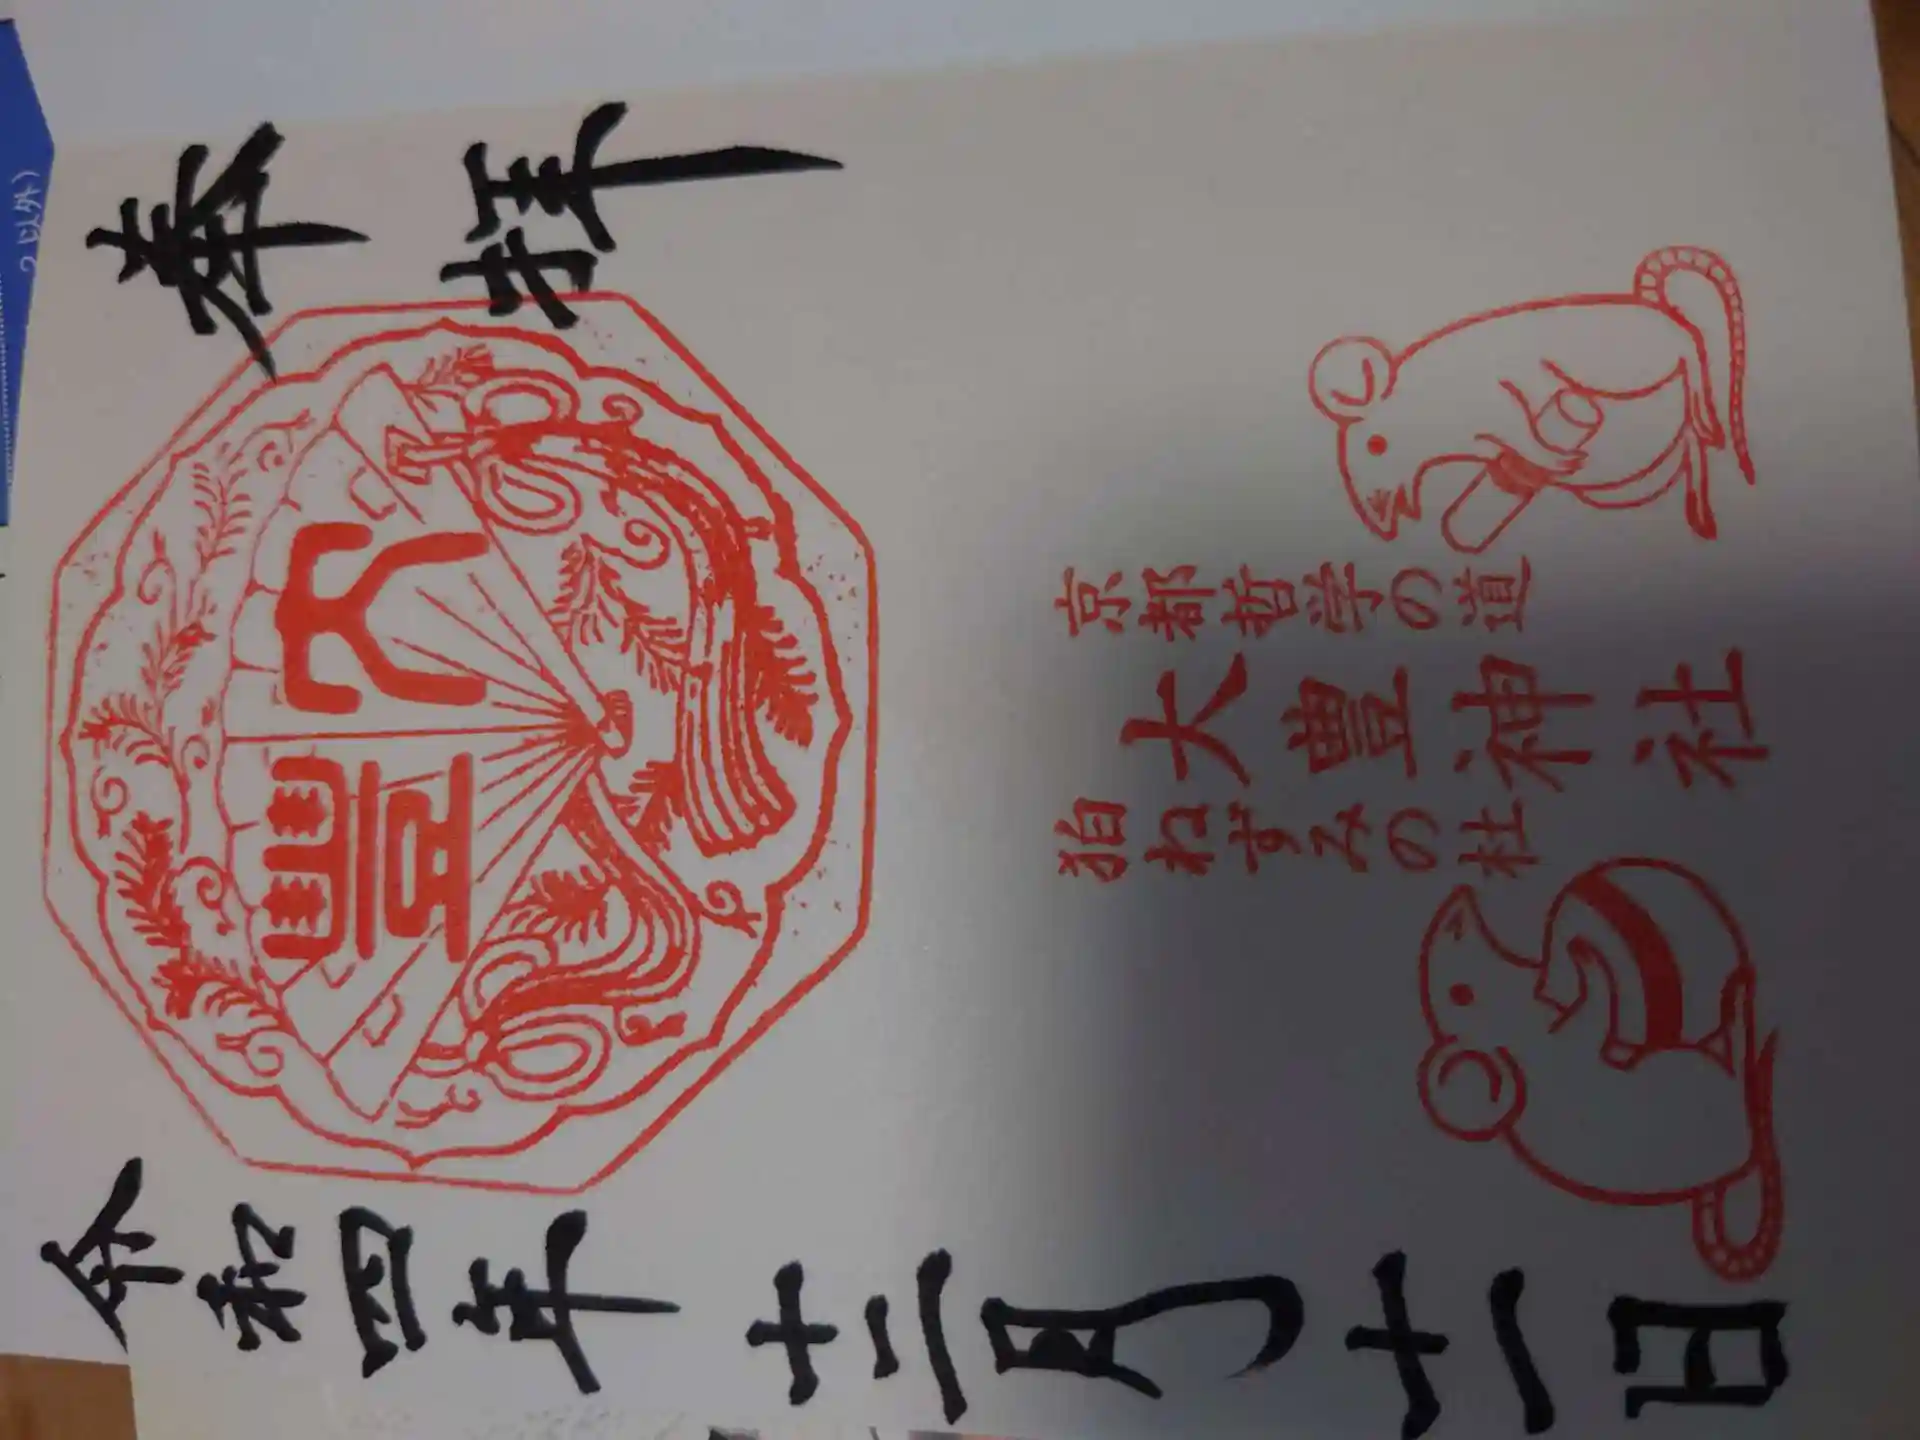 奉拝
大豊
京都哲学の道
大豊神社
狛ねずみの社
令和四年十二月十一日
2以外)